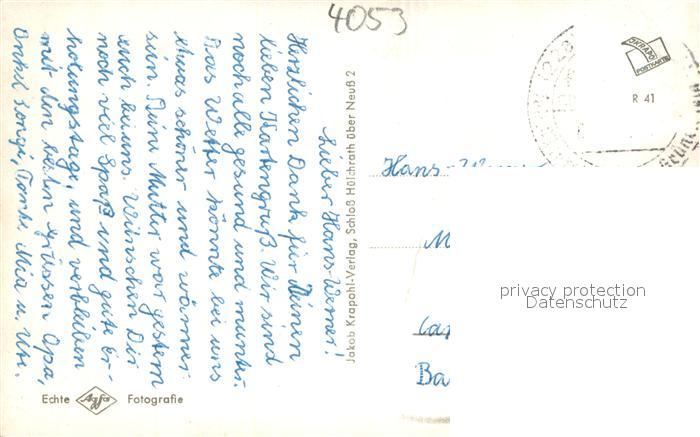 4053
KRAPO
POSTKARTE
R 41
Lieber Hans-Werner!
Herzlichen Dank für Deinen
lieben Kartengruß. Wir sind
noch alle gesund und munter.
Das Wetter könnte bei uns
etwas schöner und wärmer
sein. Deine Mutter war gestern
auch bei uns. Wünschen Dir
noch viel Spaß und gute Er-
holungstage, und verbleiben
mit den besten Grüssen Opa,
Onkel Tante Mia u. Ute.
Jakob Krapohl-Verlag, Schloß Hülchrath über Neuß 2
Hans-
M
Ba
privacy protection
Datenschutz
Echte Agfa Fotografie